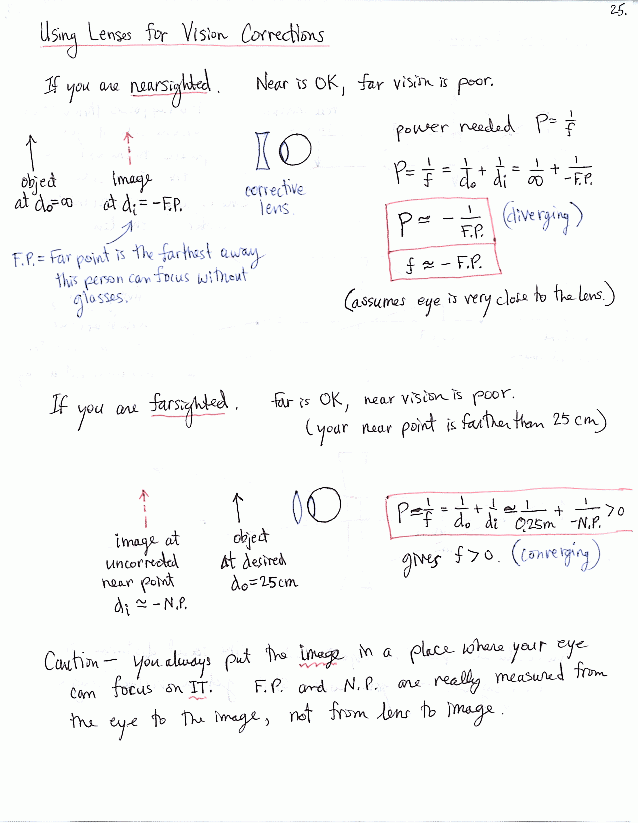 25.
Using Lenses for Vision Corrections
If you are nearsighted. Near is OK, far vision is poor.
object
at do=∞
image
at di = -F.P.
corrective
lens
F.P. = Far point is the farthest away
this person can focus without
glasses.
power needed P = 1/f
P = 1/f = 1/do + 1/di = 1/∞ + 1/-F.P.
P ≈ - 1/F.P. (diverging)
f ≈ - F.P.
(assumes eye is very close to the lens.)
If you are farsighted. far is OK, near vision is poor.
(your near point is farther than 25 cm)
image at
uncorrected
near point
di ≃ -N.P.
object
at desired
do=25cm
P = 1/f = 1/do + 1/di ≈ 1/0.25m + 1/-N.P. > 0
gives f > 0. (converging)
Caution – you always put the image in a place where your eye
can focus on IT. F.P. and N.P. are really measured from
the eye to the image, not from lens to image.